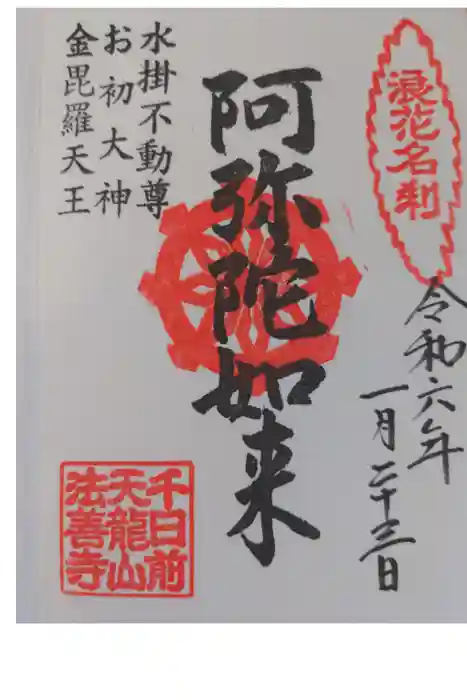 浪花名刹
令和六年
一月二十三日
阿弥陀如来
水掛不動尊
お初大神
金毘羅天王
千日前
天龍山
法善寺